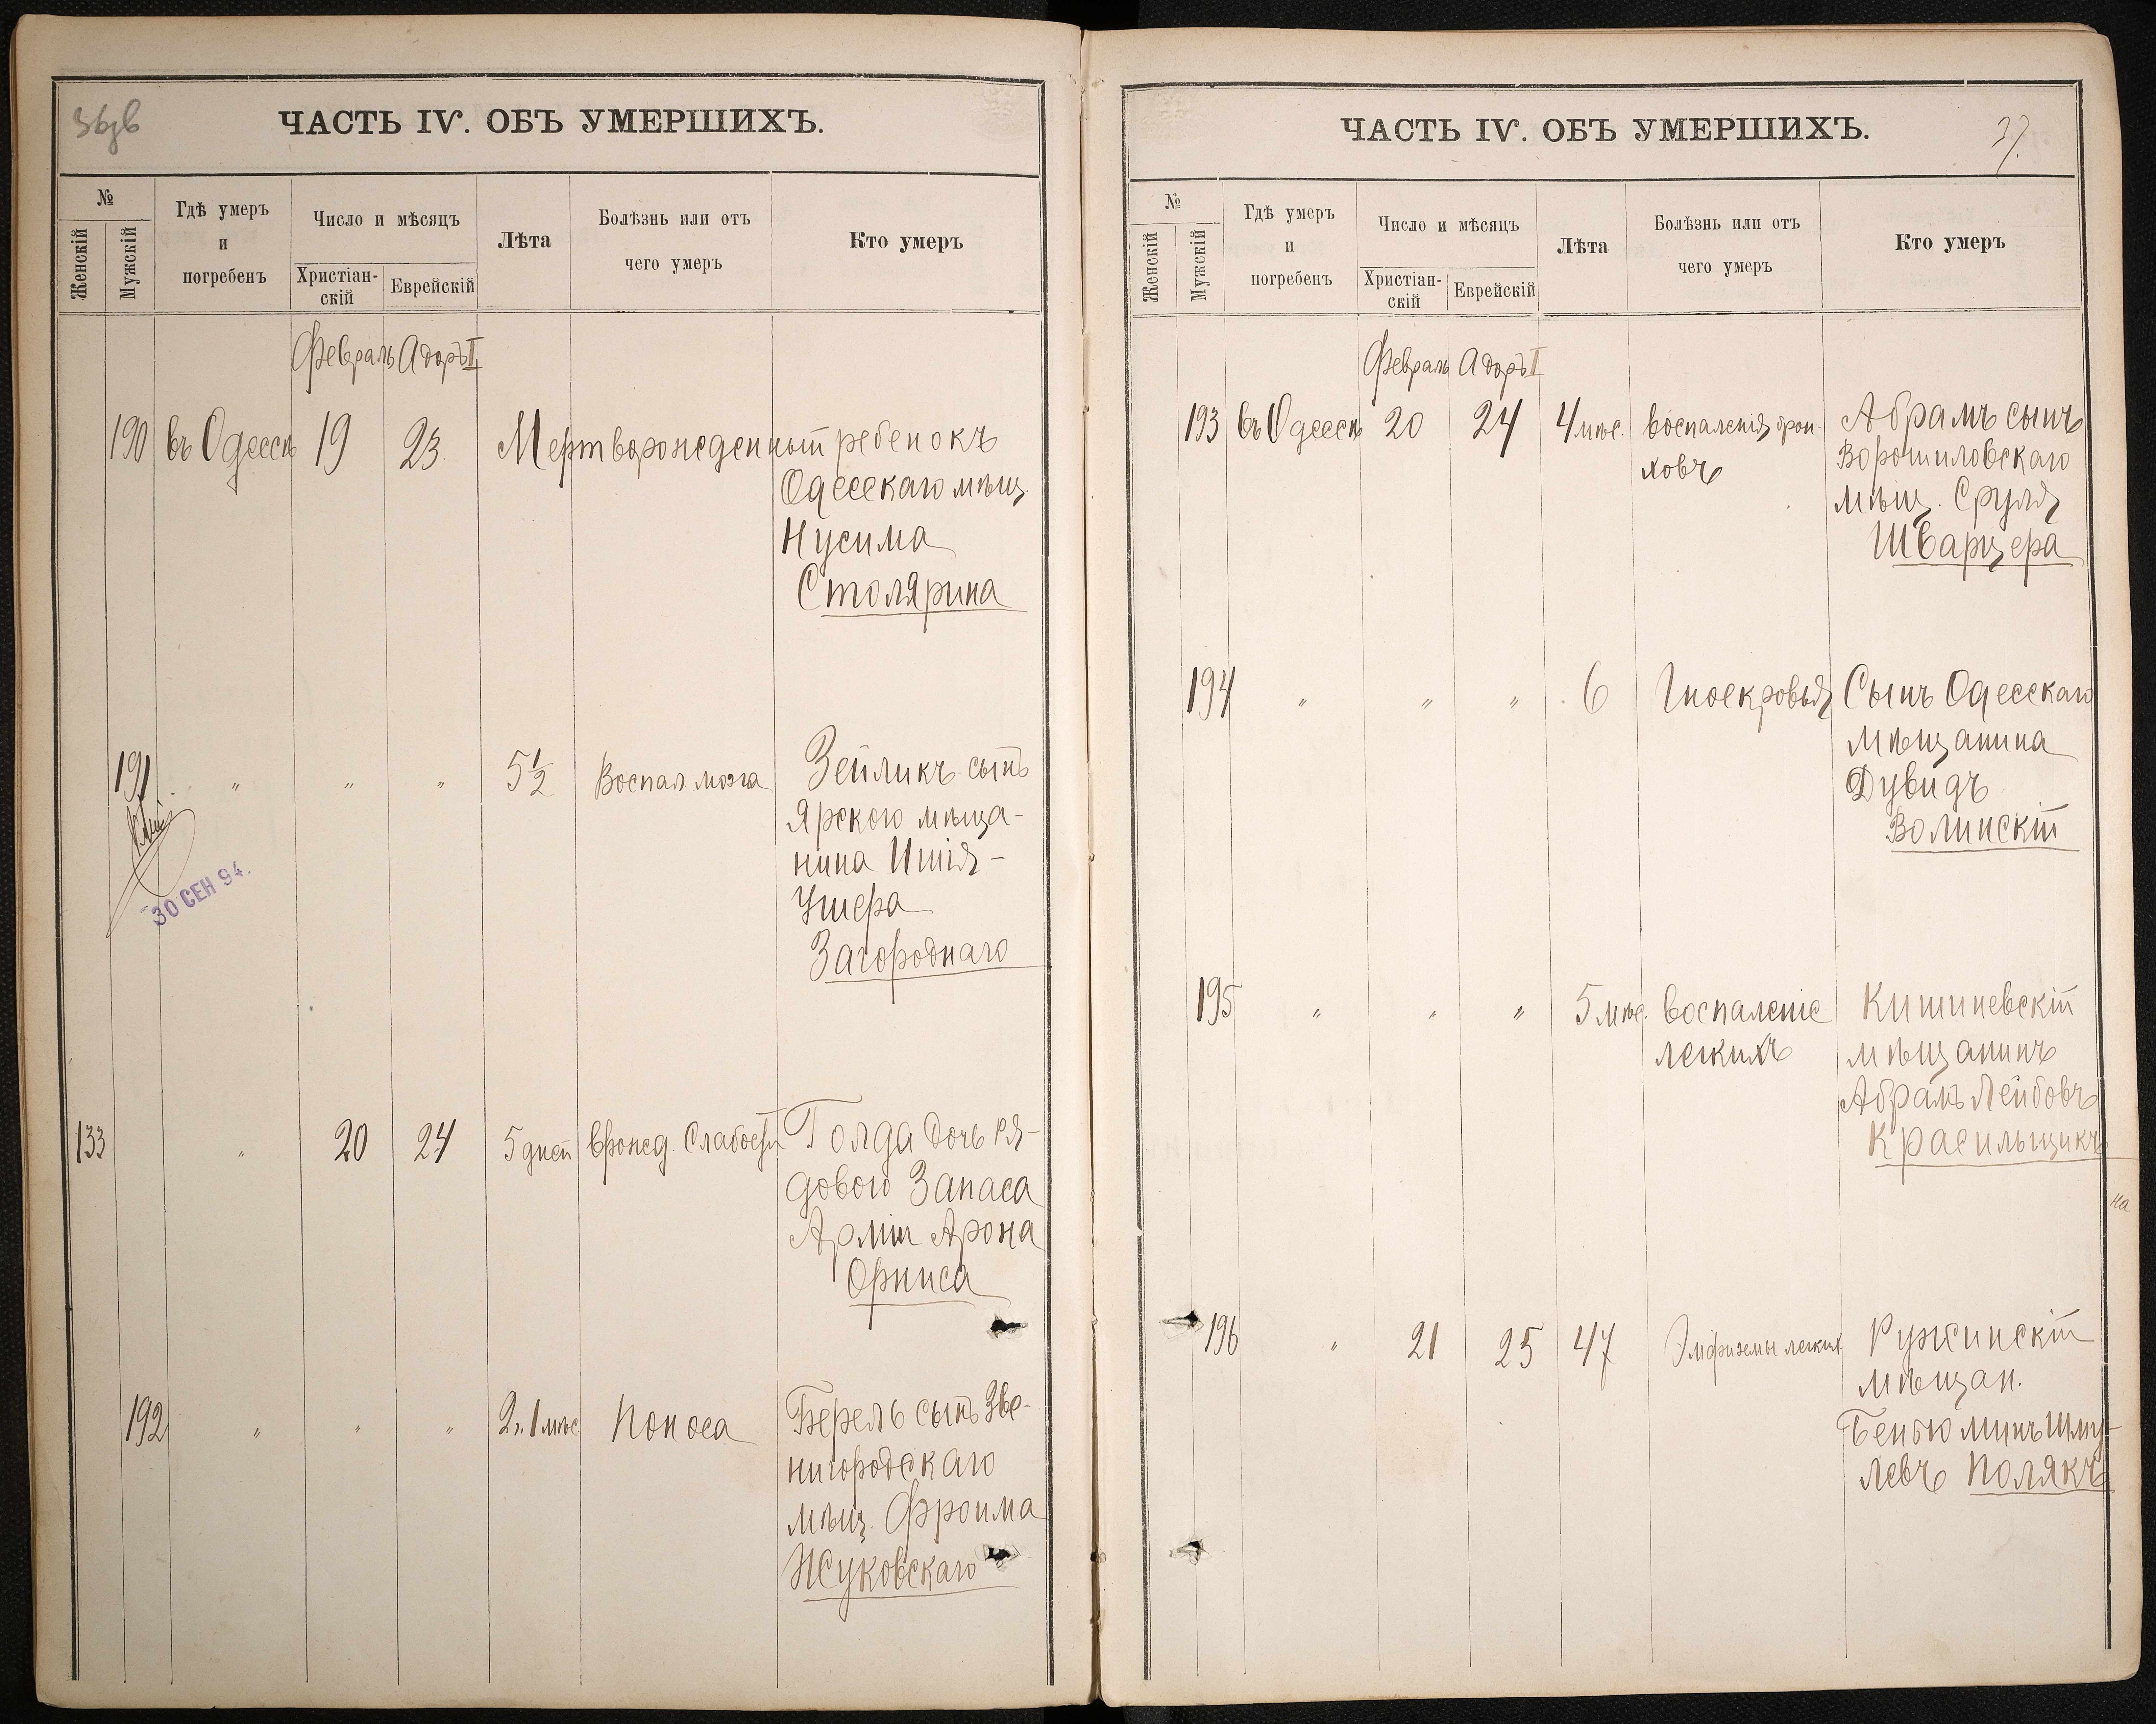 36об
ЧАСТЬ IV. ОБЪ УМЕРШИХЪ.
№
Женскій
Мужскій
Гдѣ умеръ
и
погребенъ
Число и мѣсяцъ
Христіан-
скій
Еврейскій
Лѣта
Болѣзнь или отъ
чего умеръ
Кто умеръ
Февраль Адоръ II
190 въ Одессѣ 19 23 Мертворожденный ребенокъ
Одесскаго мѣщ.
Нусима
Столярина
191 " " " 5½ Воспал мозга Зейликъ сынъ
Ярского мѣща-
нина Ишія-
Ушера
Загороднаго
30 СЕН 94.
133 " 20 24 5 дней врожд. Слабости Голда дочь ря-
дового Запаса
Арміи Арона
Орниса
192 " " " 2 г. 1 мѣс Поноса Берель сынъ Зве-
нигородскаго
мѣщ. Фроима
Жуковскаго
ЧАСТЬ IV. ОБЪ УМЕРШИХЪ.
37.
№
Женскій
Мужскій
Гдѣ умеръ
и
погребенъ
Число и мѣсяцъ
Христіан-
скій
Еврейскій
Лѣта
Болѣзнь или отъ
чего умеръ
Кто умеръ
Февраль Адоръ II
193 въ Одессѣ 20 24 4 мѣс. воспаленія брон-
ховъ
Абрамъ сынъ
Ворошиловскаго
мѣщ. Сруля
Шварцера
194 " " " 6 Гноекровья Сынъ Одесскаго
мѣщанина
Дувидъ
Волинскій
195 " " " 5 мѣс. воспаленіе
легкихъ
Кишиневскій
мѣщанинъ
Абрамъ Лейбовъ
Красильщикъ
на
196 " 21 25 47 Эмфиземы легких Ружинскій
мѣщан.
Беньюминъ Шму-
левъ Полякъ